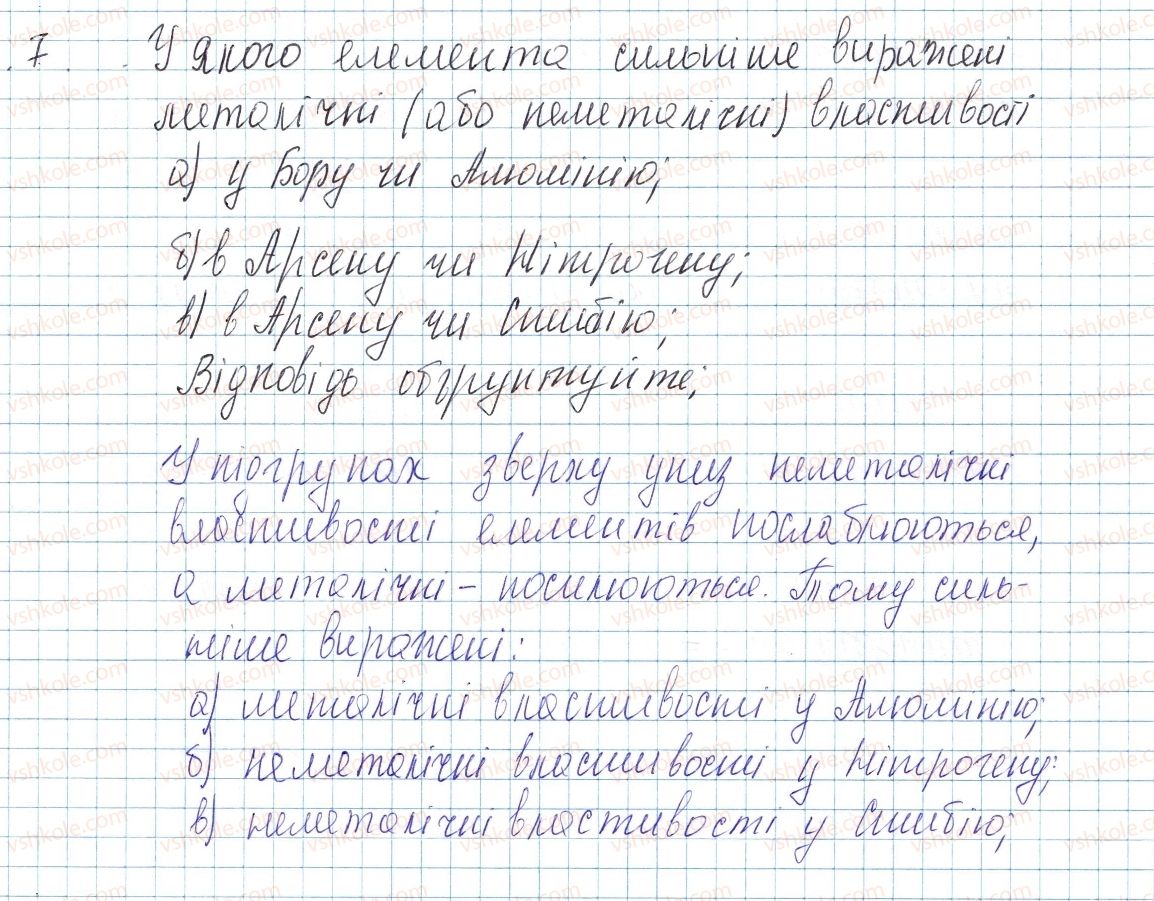 7 У якого елемента сильніше виражені
металічні (або неметалічні) властивості
а) у Бору чи Алюмінію;
б) в Арсену чи Нітрогену;
в) в Арсену чи Стибію;
Відповідь обґрунтуйте;
У підгрупах зверху униз неметалічні
властивості елементів послаблюються,
а металічні – посилюються. Тому силь-
ніше виражені:
а) металічні властивості у Алюмінію;
б) неметалічні властивості у Нітрогену;
в) неметалічні властивості у Стибію;